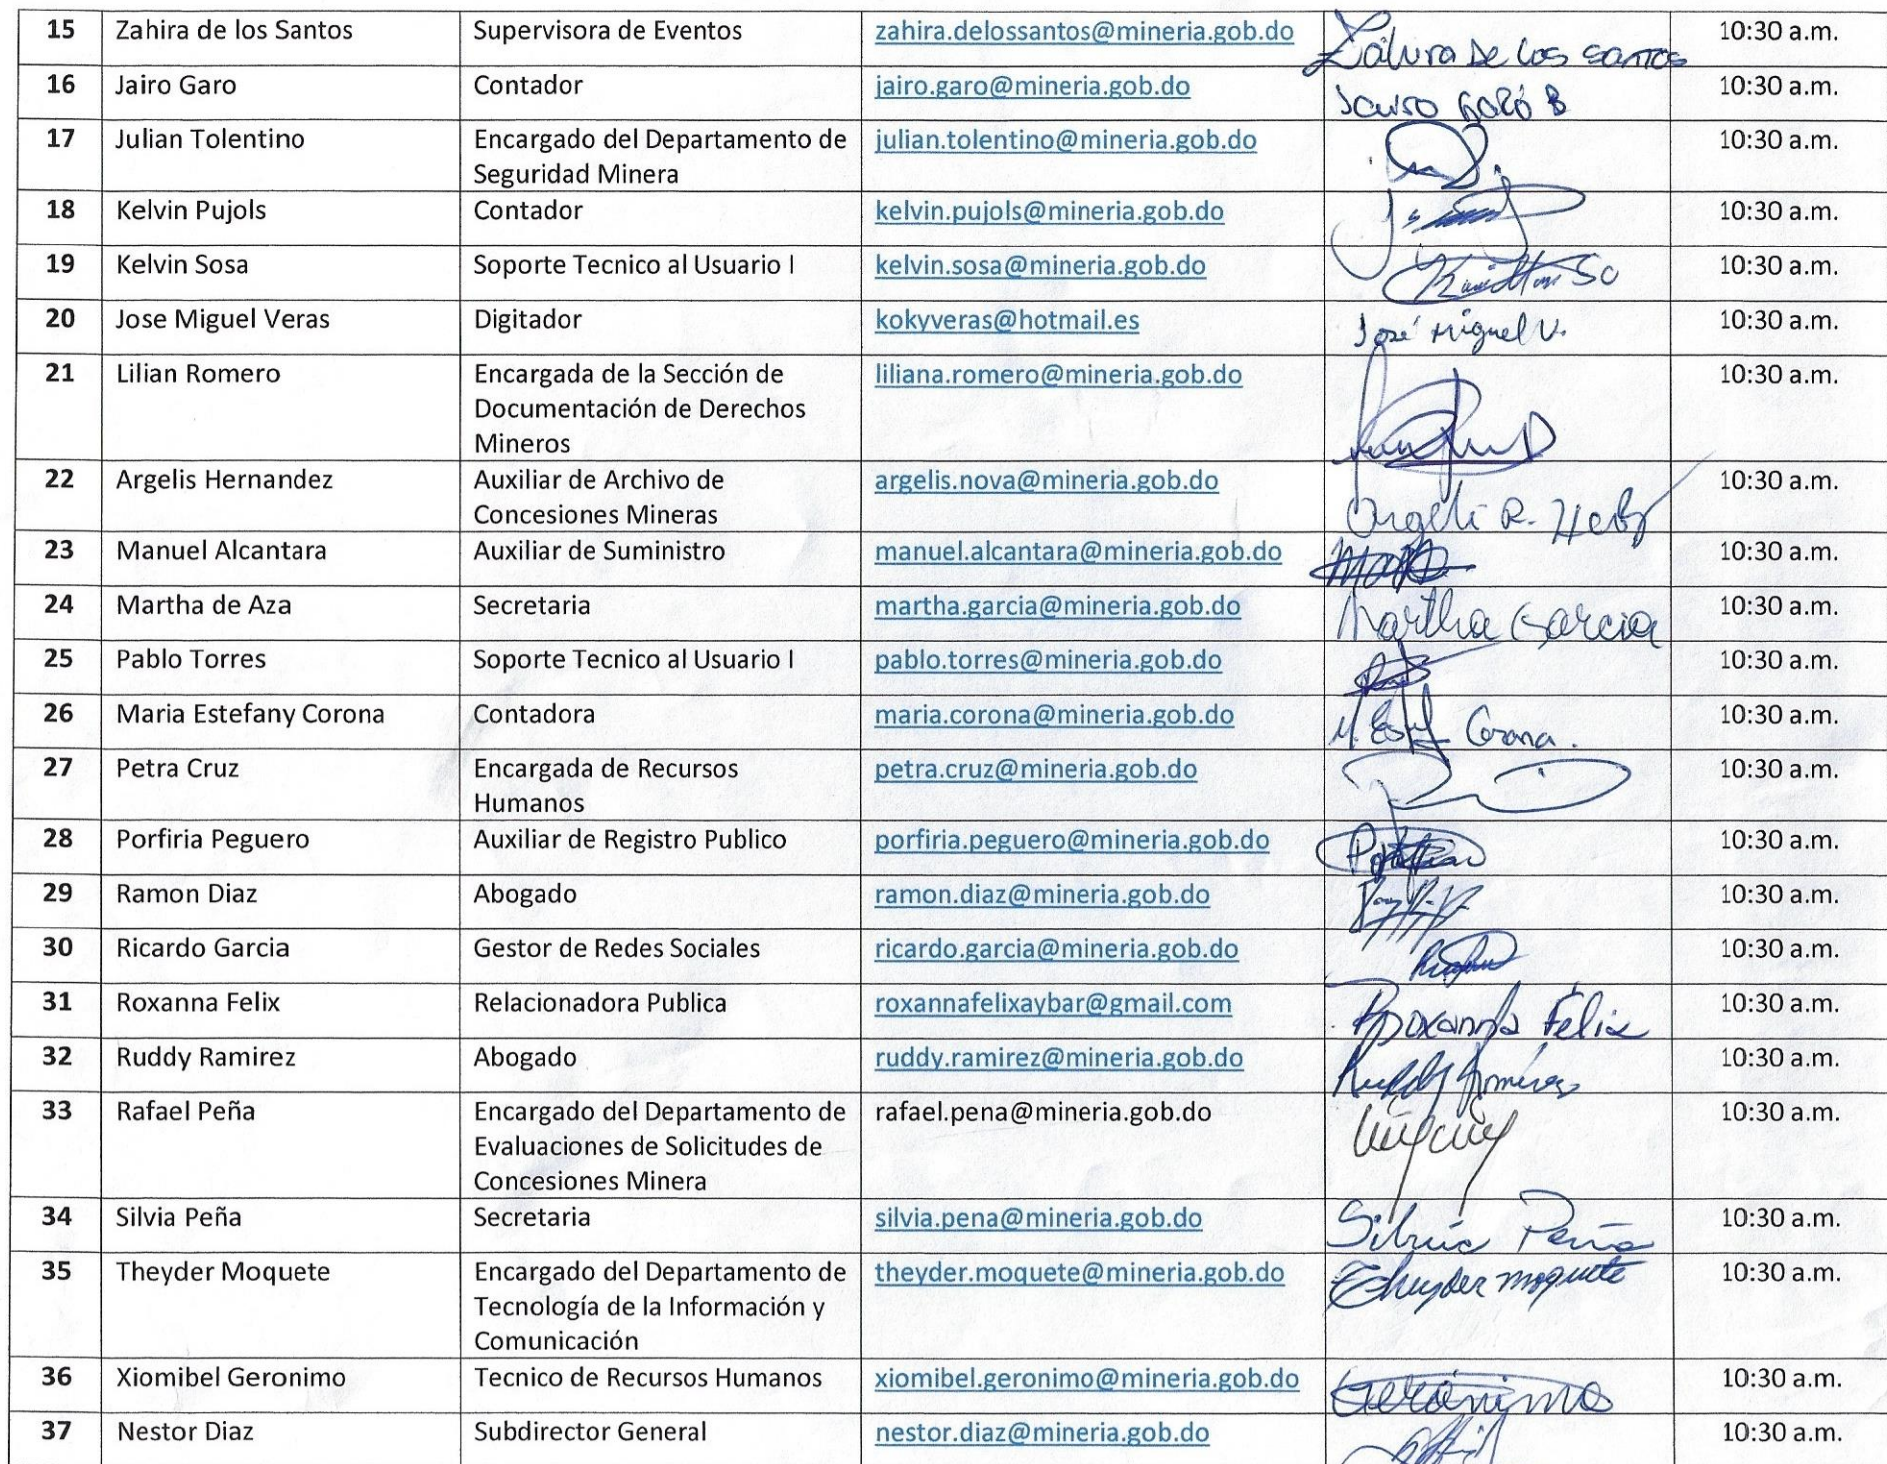 15 Zahira de los Santos Supervisora de Eventos zahira.delossantos@mineria.gob.do Zahira De los santos 10:30 a.m.
16 Jairo Garo Contador jairo.garo@mineria.gob.do Jairo Garó B 10:30 a.m.
17 Julian Tolentino Encargado del Departamento de julian.tolentino@mineria.gob.do 10:30 a.m.
Seguridad Minera
18 Kelvin Pujols Contador kelvin.pujols@mineria.gob.do 10:30 a.m.
19 Kelvin Sosa Soporte Tecnico al Usuario I kelvin.sosa@mineria.gob.do 10:30 a.m.
20 Jose Miguel Veras Digitador kokyveras@hotmail.es José Miguel V. 10:30 a.m.
21 Lilian Romero Encargada de la Sección de liliana.romero@mineria.gob.do 10:30 a.m.
Documentación de Derechos
Mineros
22 Argelis Hernandez Auxiliar de Archivo de argelis.nova@mineria.gob.do 10:30 a.m.
Concesiones Mineras
23 Manuel Alcantara Auxiliar de Suministro manuel.alcantara@mineria.gob.do 10:30 a.m.
24 Martha de Aza Secretaria martha.garcia@mineria.gob.do Martha Garcia 10:30 a.m.
25 Pablo Torres Soporte Tecnico al Usuario I pablo.torres@mineria.gob.do 10:30 a.m.
26 Maria Estefany Corona Contadora maria.corona@mineria.gob.do Corona. 10:30 a.m.
27 Petra Cruz Encargada de Recursos petra.cruz@mineria.gob.do 10:30 a.m.
Humanos
28 Porfiria Peguero Auxiliar de Registro Publico porfiria.peguero@mineria.gob.do 10:30 a.m.
29 Ramon Diaz Abogado ramon.diaz@mineria.gob.do 10:30 a.m.
30 Ricardo Garcia Gestor de Redes Sociales ricardo.garcia@mineria.gob.do 10:30 a.m.
31 Roxanna Felix Relacionadora Publica roxannafelixaybar@gmail.com Roxanna Félix 10:30 a.m.
32 Ruddy Ramirez Abogado ruddy.ramirez@mineria.gob.do Ruddy Ramirez 10:30 a.m.
33 Rafael Peña Encargado del Departamento de rafael.pena@mineria.gob.do 10:30 a.m.
Evaluaciones de Solicitudes de
Concesiones Minera
34 Silvia Peña Secretaria silvia.pena@mineria.gob.do Silvia Peña 10:30 a.m.
35 Theyder Moquete Encargado del Departamento de theyder.moquete@mineria.gob.do Theyder moquete 10:30 a.m.
Tecnología de la Información y
Comunicación
36 Xiomibel Geronimo Tecnico de Recursos Humanos xiomibel.geronimo@mineria.gob.do Gerónimo 10:30 a.m.
37 Nestor Diaz Subdirector General nestor.diaz@mineria.gob.do 10:30 a.m.